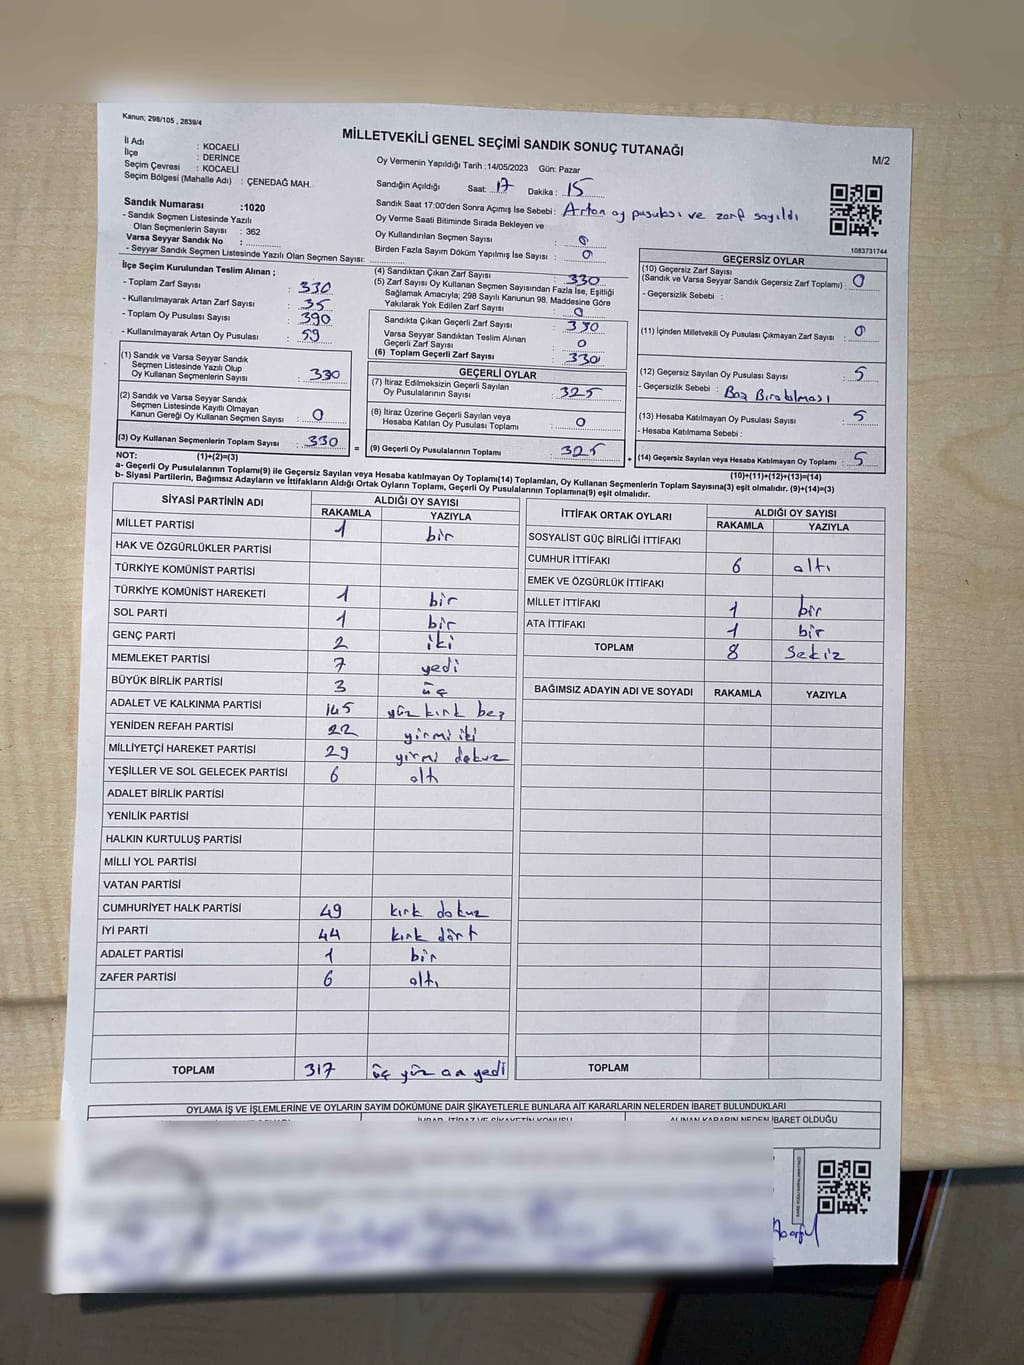 Kanun; 298/105 , 2839/4
MİLLETVEKİLİ GENEL SEÇİMİ SANDIK SONUÇ TUTANAĞI
M/2
İl Adı : KOCAELİ
İlçe : DERİNCE
Seçim Çevresi : KOCAELİ
Seçim Bölgesi (Mahalle Adı) : ÇENEDAĞ MAH.
Sandık Numarası :1020
- Sandık Seçmen Listesinde Yazılı
Olan Seçmenlerin Sayısı : 362
Varsa Seyyar Sandık No :
- Seyyar Sandık Seçmen Listesinde Yazılı Olan Seçmen Sayısı:
Oy Vermenin Yapıldığı Tarih :14/05/2023 Gün: Pazar
Sandığın Açıldığı Saat: 17 Dakika : 15
Sandık Saat 17:00'den Sonra Açımış İse Sebebi : Artan oy pusulası ve zarf sayıldı
Oy Verme Saati Bitiminde Sırada Bekleyen ve
Oy Kullandırılan Seçmen Sayısı : 0
Birden Fazla Sayım Döküm Yapılmış İse Sayısı : 0
1083731744
İlçe Seçim Kurulundan Teslim Alınan ;
- Toplam Zarf Sayısı : 330
- Kullanılmayarak Artan Zarf Sayısı : 35
- Toplam Oy Pusulası : 390
- Kullanılmayarak Artan Oy Pusulası : 59
(1) Sandık ve Varsa Seyyar Sandık
Seçmen Listesinde Yazılı Olup
Oy Kullanan Seçmenlerin Sayısı : 330
(2) Sandık ve Varsa Seyyar Sandık
Seçmen Listesinde Kayıtlı Olmayan
Kanun Gereği Oy Kullanan Seçmen Sayısı : 0
(3) Oy Kullanan Seçmenlerin Toplam Sayısı : 330
(4) Sandıktan Çıkan Zarf Sayısı : 330
(5) Zarf Sayısı Oy Kullanan Seçmen Sayısından Fazla İse, Eşitliği
Sağlamak Amacıyla; 298 Sayılı Kanunun 98. Maddesine Göre
Yakılarak Yok Edilen Zarf Sayısı : 0
Sandıkta Çıkan Geçerli Zarf Sayısı : 330
Varsa Seyyar Sandıktan Teslim Alınan
Geçerli Zarf Sayısı : 0
(6) Toplam Geçerli Zarf Sayısı : 330
GEÇERLİ OYLAR
(7) İtiraz Edilmeksizin Geçerli Sayılan
Oy Pusulalarının Sayısı : 325
(8) İtiraz Üzerine Geçerli Sayılan veya
Hesaba Katılan Oy Pusulası Toplamı : 0
= (9) Geçerli Oy Pusulalarının Toplamı : 325
GEÇERSİZ OYLAR
(10) Geçersiz Zarf Sayısı
(Sandık ve Varsa Seyyar Sandık Geçersiz Zarf Toplamı) : 0
- Geçersizlik Sebebi :
(11) İçinden Milletvekili Oy Pusulası Çıkmayan Zarf Sayısı : 0
(12) Geçersiz Sayılan Oy Pusulası Sayısı : 5
- Geçersizlik Sebebi : Boş Bırakılması
(13) Hesaba Katılmayan Oy Pusulası Sayısı : 5
- Hesaba Katılmama Sebebi :
+ (14) Geçersiz Sayılan veya Hesaba Katılmayan Oy Toplamı : 5
NOT: (1)+(2)=(3)
(10)+(11)+(12)+(13)=(14)
a- Geçerli Oy Pusulalarının Toplamı(9) ile Geçersiz Sayılan veya Hesaba katılmayan Oy Toplamı(14) Toplamları, Oy Kullanan Seçmenlerin Toplam Sayısına(3) eşit olmalıdır. (9)+(14)=(3)
b- Siyasi Partilerin, Bağımsız Adayların ve İttifakların Aldığı Ortak Oyların Toplamı, Geçerli Oy Pusulalarının Toplamına(9) eşit olmalıdır.
SİYASİ PARTİNİN ADI ALDIĞI OY SAYISI
RAKAMLA YAZIYLA
MİLLET PARTİSİ 1 bir
HAK VE ÖZGÜRLÜKLER PARTİSİ
TÜRKİYE KOMÜNİST PARTİSİ
TÜRKİYE KOMÜNİST HAREKETİ 1 bir
SOL PARTİ 1 bir
GENÇ PARTİ 2 iki
MEMLEKET PARTİSİ 7 yedi
BÜYÜK BİRLİK PARTİSİ 3 üç
ADALET VE KALKINMA PARTİSİ 145 yüz kırk beş
YENİDEN REFAH PARTİSİ 22 yirmi iki
MİLLİYETÇİ HAREKET PARTİSİ 29 yirmi dokuz
YEŞİLLER VE SOL GELECEK PARTİSİ 6 altı
ADALET BİRLİK PARTİSİ
YENİLİK PARTİSİ
HALKIN KURTULUŞ PARTİSİ
MİLLİ YOL PARTİSİ
VATAN PARTİSİ
CUMHURİYET HALK PARTİSİ 49 kırk dokuz
İYİ PARTİ 44 kırk dört
ADALET PARTİSİ 1 bir
ZAFER PARTİSİ 6 altı
TOPLAM 317 üç yüz on yedi
İTTİFAK ORTAK OYLARI ALDIĞI OY SAYISI
RAKAMLA YAZIYLA
SOSYALİST GÜÇ BİRLİĞİ İTTİFAKI
CUMHUR İTTİFAKI 6 altı
EMEK VE ÖZGÜRLÜK İTTİFAKI
MİLLET İTTİFAKI 1 bir
ATA İTTİFAKI 1 bir
TOPLAM 8 Sekiz
BAĞIMSIZ ADAYIN ADI VE SOYADI RAKAMLA YAZIYLA
TOPLAM
OYLAMA İŞ VE İŞLEMLERİNE VE OYLARIN SAYIM DÖKÜMÜNE DAİR ŞİKAYETLERLE BUNLARA AİT KARARLARIN NELERDEN İBARET BULUNDUKLARI
ALINAN KARARIN NEDEN İBARET OLDUĞU